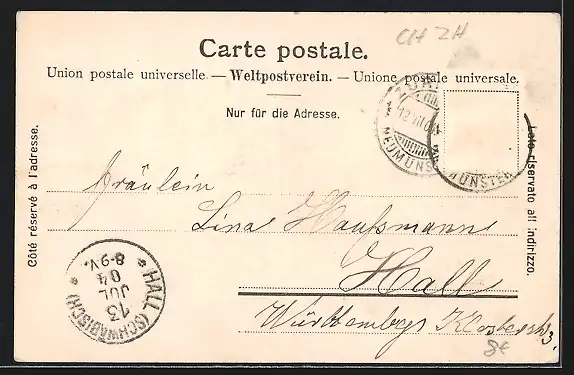 CH ZH
Carte postale.
Union postale universelle. — Weltpostverein. — Unione postale universale.
Nur für die Adresse.
Côté réservé à l'adresse.
Lato riservato all' indirizzo.
NEUMÜNS
MÜNSTER
Fräulein
Lina Haussmann
Hall
Württemberg
3.
HALL (SCHWÄBISCH)
13
JUL
04
8-9V.